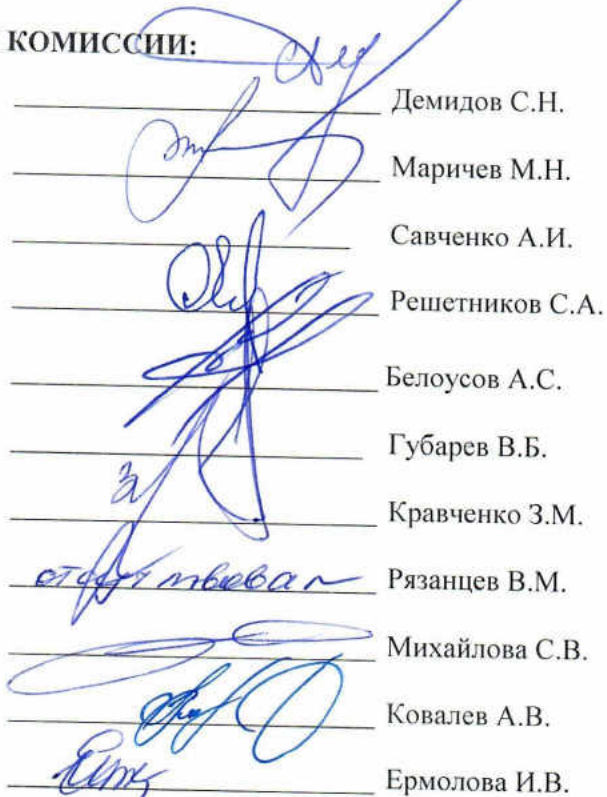 КОМИССИИ:
Демидов С.Н.
Маричев М.Н.
Савченко А.И.
Решетников С.А.
Белоусов А.С.
Губарев В.Б.
Кравченко З.М.
отсутствовал Рязанцев В.М.
Михайлова С.В.
Ковалев А.В.
Ермолова И.В.